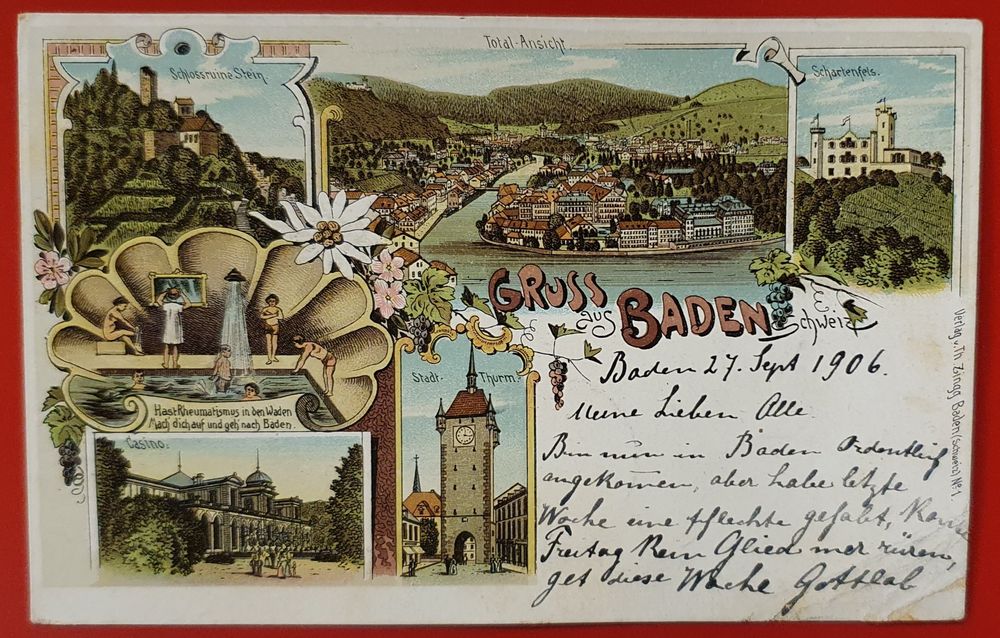 Schlossruine Stein.
Total-Ansicht
Schartenfels.
GRUSS
aus BADEN
Schweiz
Hast Rheumatismus in den Waden
Mach dich auf und geh nach Baden.
Casino.
Stadt-Thurm.
Verlag v. Th. Zingg, Baden (Schweiz) No 1.
Baden 27. Sept 1906.
Meine Lieben Alle
Bin nun in Baden Ordentlich
angekomen, aber habe letzte
Woche eine
Freitag Kein Glied mer rüren,
get diese Woche Gottlob